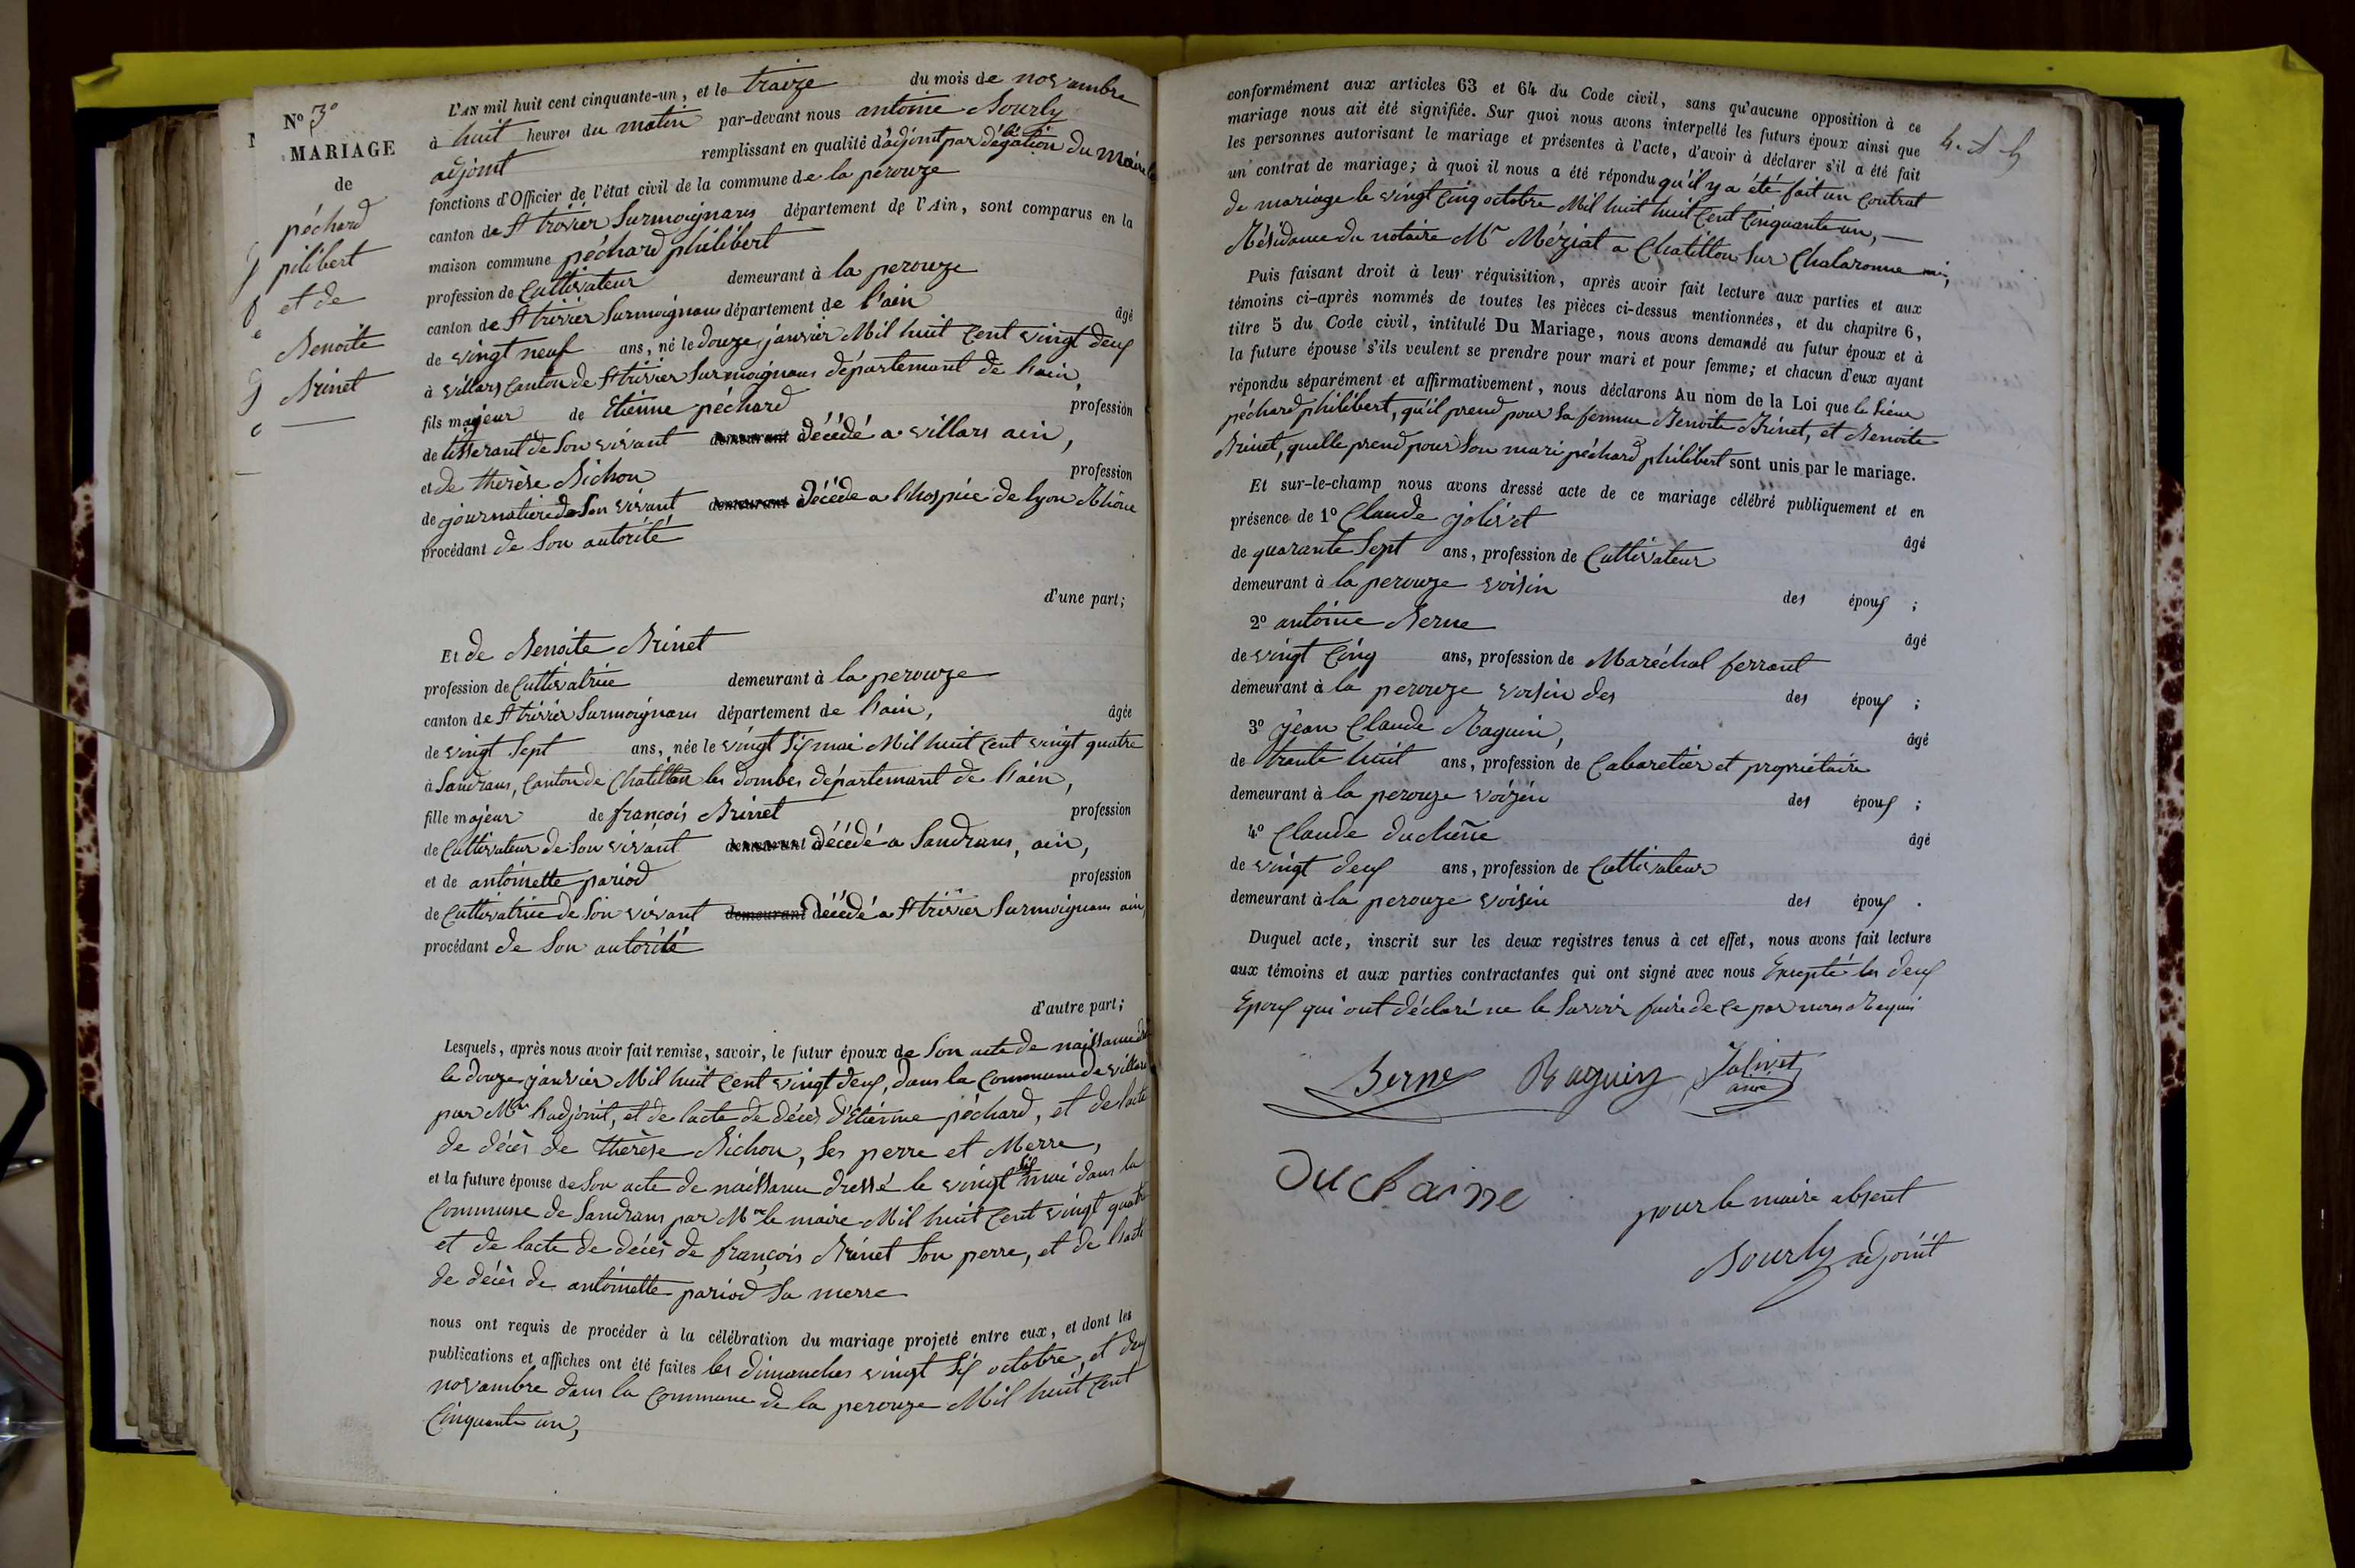 N° 3°
MARIAGE
de
péchard
pilibert
et de
Benoite
Brinet
L'AN mil huit cent cinquante-un, et le traize du mois de novambre
à huit heures du matin par-devant nous antoine Bourly
adjoint remplissant en qualité d'adjoint par délégation du maire les
fonctions d'Officier de l'état civil de la commune de la perouze
canton de St trivier Surmoignans département de l'Ain, sont comparus en la
maison commune péchard philibert
profession de Cultivateur demeurant à la perouze
canton de St trivier Surmoignans département de l'ain âgé
de vingt neuf ans, né le douze janvier Mil huit Cent vingt deux
à villars Canton de St trivier Surmoignans département de l'ain,
fils majeur de Etienne péchard profession
de tisserant de Son vivant demeurant décédé a villars ain,
et de therèse Bichon profession
de journalière de Son vivant demeurant décéde a l'hospice de lyon Rhône
procédant de Son autorité
d'une part;
Et de Benoite Brinet
profession de Cultivatrice demeurant à la perouze
canton de St trivier Surmoignans département de l'ain, âgée
de vingt Sept ans, née le vingt Six mai Mil huit Cent vingt quatre
à Sandrans, Canton de Chatillon les dombes département de l'ain,
fille majeur de françois Brinet profession
de Cultivateur de Son vivant demeurant décédé a Sandrans, ain,
et de antoinette pariod profession
de Cultivatrice de Son vivant demeurant décédé a St trivier Surmoignans ain,
procédant de Son autorité
d'autre part;
Lesquels, après nous avoir fait remise, savoir, le futur époux de Son acte de naissance
le douze janvier Mil huit Cent vingt deux, dans la Commune de villars
par Mr l'adjoint, et de lacte de décès d'Etienne péchard, et de lacte
de décès de thérèse Bichon, Ses perre et Merre,
et la future épouse de Son acte de naissance dressé le vingt Six mai dans la
Commune de Sandrans par Mr le maire Mil huit Cent vingt quatre
et de lacte de décès de françois Brinet Son perre, et de l'acte
de décès de antoinette pariod Sa merre
nous ont requis de procéder à la célébration du mariage projeté entre eux, et dont les
publications et affiches ont été faites les dimanches vingt Six octobre, et deux
novambre dans la Commune de la perouze Mil huit Cent
Cinquante un,
conformément aux articles 63 et 64 du Code civil, sans qu'aucune opposition à ce
mariage nous ait été signifiée. Sur quoi nous avons interpellé les futurs époux ainsi que
les personnes autorisant le mariage et présentes à l'acte, d'avoir à déclarer s'il a été fait
un contrat de mariage; à quoi il nous a été répondu qu'il y a été fait un Contrat
de mariage le vingt Cinq octobre Mil huit Cent Cinquante un,
Résidance du notaire Mr Méziat a Chatillon Sur Chalaronne
Puis faisant droit à leur réquisition, après avoir fait lecture aux parties et aux
témoins ci-après nommés de toutes les pièces ci-dessus mentionnées, et du chapitre 6,
titre 5 du Code civil, intitulé Du Mariage, nous avons demandé au futur époux et à
la future épouse s'ils veulent se prendre pour mari et pour femme; et chacun d'eux ayant
répondu séparément et affirmativement, nous déclarons Au nom de la Loi que le Sieur
péchard philibert, qu'il prend pour Sa femme Benoite Brinet, et Benoite
Brinet, quelle prend pour Son mari péchard philibert sont unis par le mariage.
Et sur-le-champ nous avons dressé acte de ce mariage célébré publiquement et en
présence de 1° Claude jolivet âgé
de quarante Sept ans, profession de Cultivateur
demeurant à la perouze voisin des époux ;
2° antoine Berne âgé
de vingt Cinq ans, profession de Maréchal ferrant
demeurant à la perouze voisin des des époux ;
3° jean Claude Raguin, âgé
de trante huit ans, profession de Cabaretier et propriétaire
demeurant à la perouze voizin des époux ;
4° Claude duchêne âgé
de vingt deux ans, profession de Cultivateur
demeurant à la perouze voisin des époux .
Duquel acte, inscrit sur les deux registres tenus à cet effet, nous avons fait lecture
aux témoins et aux parties contractantes qui ont signé avec nous Excepté les deux
Epoux qui ont déclaré ne le Savoir faire de ce par nous Requi
Berne Raguin Jolivet
ainé
Duchaine
pour le maire absent
Bourly adjoint